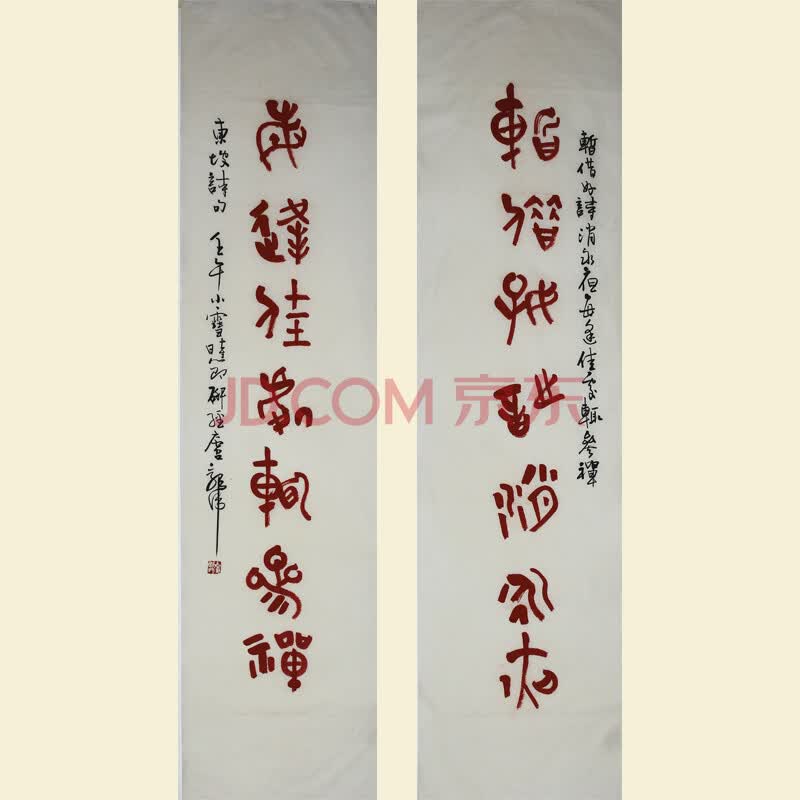 暫借好詩消永夜每逢佳處輒參禪
暫借好詩消永夜
每逢佳處輒參禪
東坡詩句 壬午小雪
JD.COM 京东